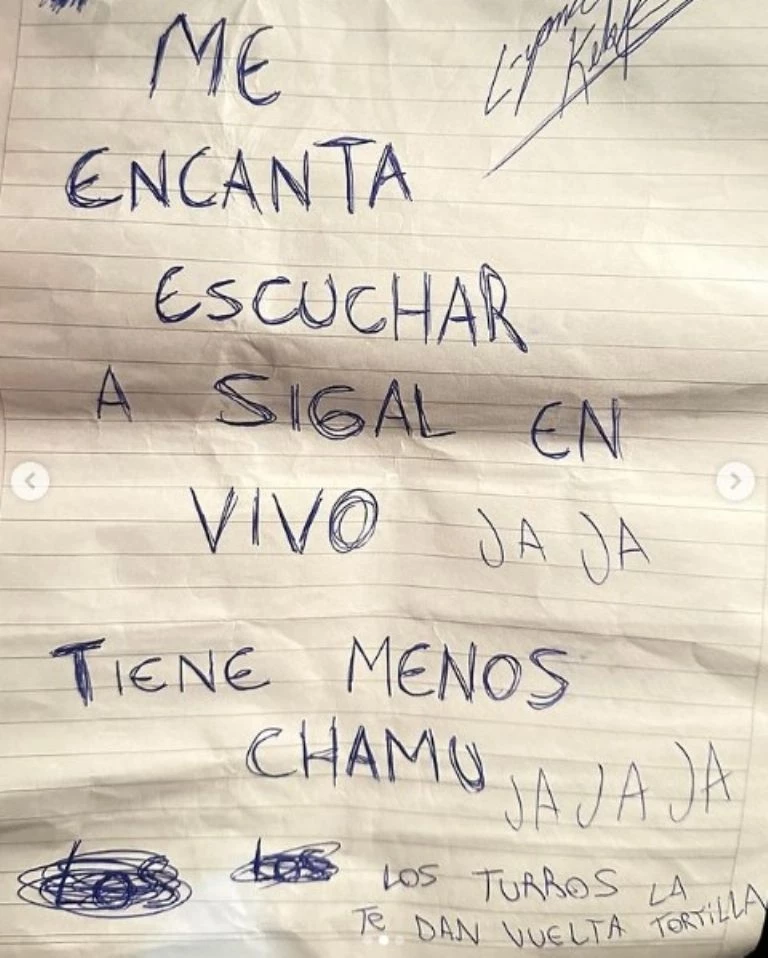 ME
ENCANTA
ESCUCHAR
A SIGAL EN
VIVO JA JA
TIENE MENOS
CHAMU JA JA JA
LOS LOS LOS TURROS LA
TE DAN VUELTA TORTILLA